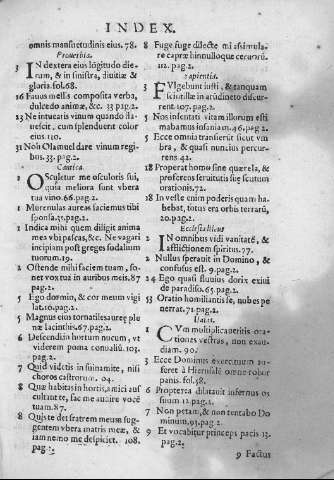 INDEX.
omnis mansuetudinis eius. 78.
Prouerbia.
3 IN dextera eius lõgitudo die-
rum, & in sinistra, diuitiæ &
gloria. fol. 68.
16 Fauus mellis composita verba,
dulcedo animæ, &c. 33 pag. 2.
23 Ne intuearis vinum quando fla-
uescit, cum splenduerit color
eius 110.
31 Noli Olamuel dare vinum regi-
bus. 33. pag. 2.
Cantica.
1 OSculetur me osculo oris sui,
quia meliora sunt vbera
tua vino. 66. pag. 2.
1 Murenulas aureas faciemus tibi
sponsa. 35. pag. 2.
1 Indica mihi quem diligit anima
mea vbi pascas, &c. Ne vagari
incipiam post greges sodalium
tuorum. 19.
2 Ostende mihi faciem tuam, so-
net vox tua in auribus meis. 87
pag. 2.
5 Ego dormio, & cor meum vigi
lat. 10. pag. 2.
5 Magnus eius tornatiles aureę ple
næ Iacinthis. 67. pag. 2.
6 Descendi in hortum nucum, vt
viderem poma conualiũ. 103.
pag. 2.
7 Quid videtis in sunamite, nisi
choros castrorum. 94.
8 Quæ habitas in hortis, amici aus
cultant te, fac me audire vocẽ
tuam. 87.
8 Quis te det fratrem meum sug-
gentem vbera matris meæ, &
iam nemo me despiciet. 108.
pag. 2.
8 Fuge fuge dilecte mi assimula-
re capræ hinnuloque ceruorũ.
112. pag. 2.
Sapientia.
3 FVlgebunt iusti, & tanquam
scintillæ in arũdineto discur-
rent. 107. pag. 2.
5 Nos insensati vitam illorum esti
mabamus insaniam. 46. pag. 2.
5 Ecce omnia transierũt sicut vm
bra, & quasi nuncius percur-
rens. 42.
18 Properat homo sine querela, &
proferens seruitutis sue scutum
orationis. 72.
18 In veste enim poderis quam ha-
bebat, totus erat orbis terrarũ,
20. pag. 2.
Ecclesiasticus
2 IN omnibus vidi vanitatẽ, &
afflictionem spiritus. 77.
2 Nullus sperauit in Domino, &
confusus est. 9. pag. 2.
24 Ego quasi fluuius dorix exiui
de paradiso. 65. pag. 2.
35 Oratio humiliantis se, nubes pe
nerrat. 71. pag. 2.
Isaiæ.
1 CVm multiplicaueritis ora-
tiones vestras, non exau-
diam. 90.
3 Ecce Dominus exercituum au-
feret à Hierusalẽ omne robur
panis. fol. 58.
6 Propterea dilatauit infernus os
suum 12. pag. 2.
7 Non petam, & non tentabo Do
minum. 93. pag. 2.
9 Et vocabitur princeps pacis 13.
pag. 2.
9 Factus